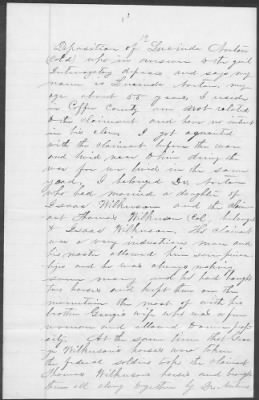 12
Deposition of Lucinda Norton
(Cold) who in answer to the genl
Interrogatory deposes and says my
name is Lucinda Norton, my
age about 55 years, I reside
in Coffee County am not related
to the claimant and have no interest
in his claim. I got aquainted
with the claimant before the war
and lived near to him during the
war for we lived in the same
yard. I belonged Dr. Norton
who had married a daughter of
Isaac Wilkinson and the claim
ant Thomas Wilkinson Col. belonged
to Isaac Wilkinson. The claimant
was a very industrious man and
his master allowed him
and he was always making
money and he had bought
two horses and kept them on the
mountain the most of with his
brother George's wife who was a free
woman and allowed to own prop
erty. At the same time that
Wilkinson's horses were taken
the federal soldiers took the claimant
Thomas Wilkinson's horses and brought
them all along together by Dr. Nortons